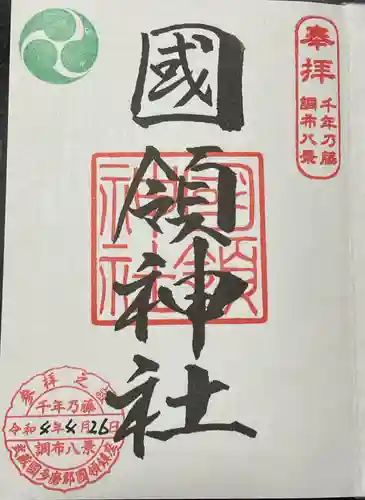 奉拝
千年乃藤
調布八景
國領神社
國領神社
参拝之
千年乃藤
令和4年4月26日
調布八景
武蔵國多摩郡國領鎮座